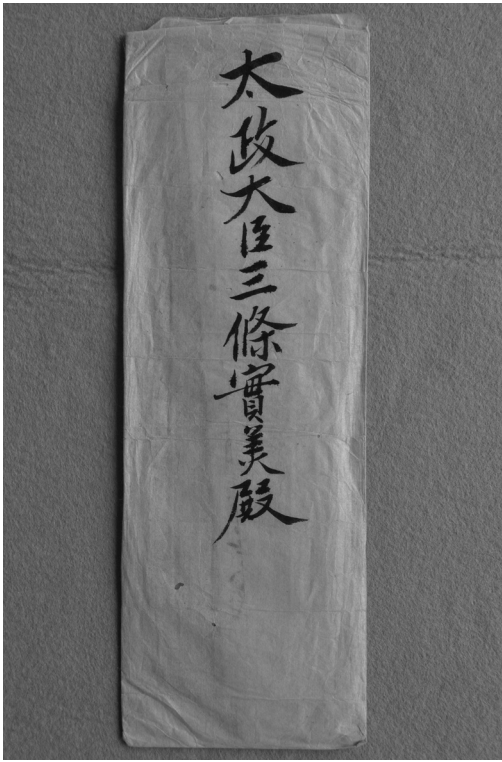 太政大臣三條實美殿